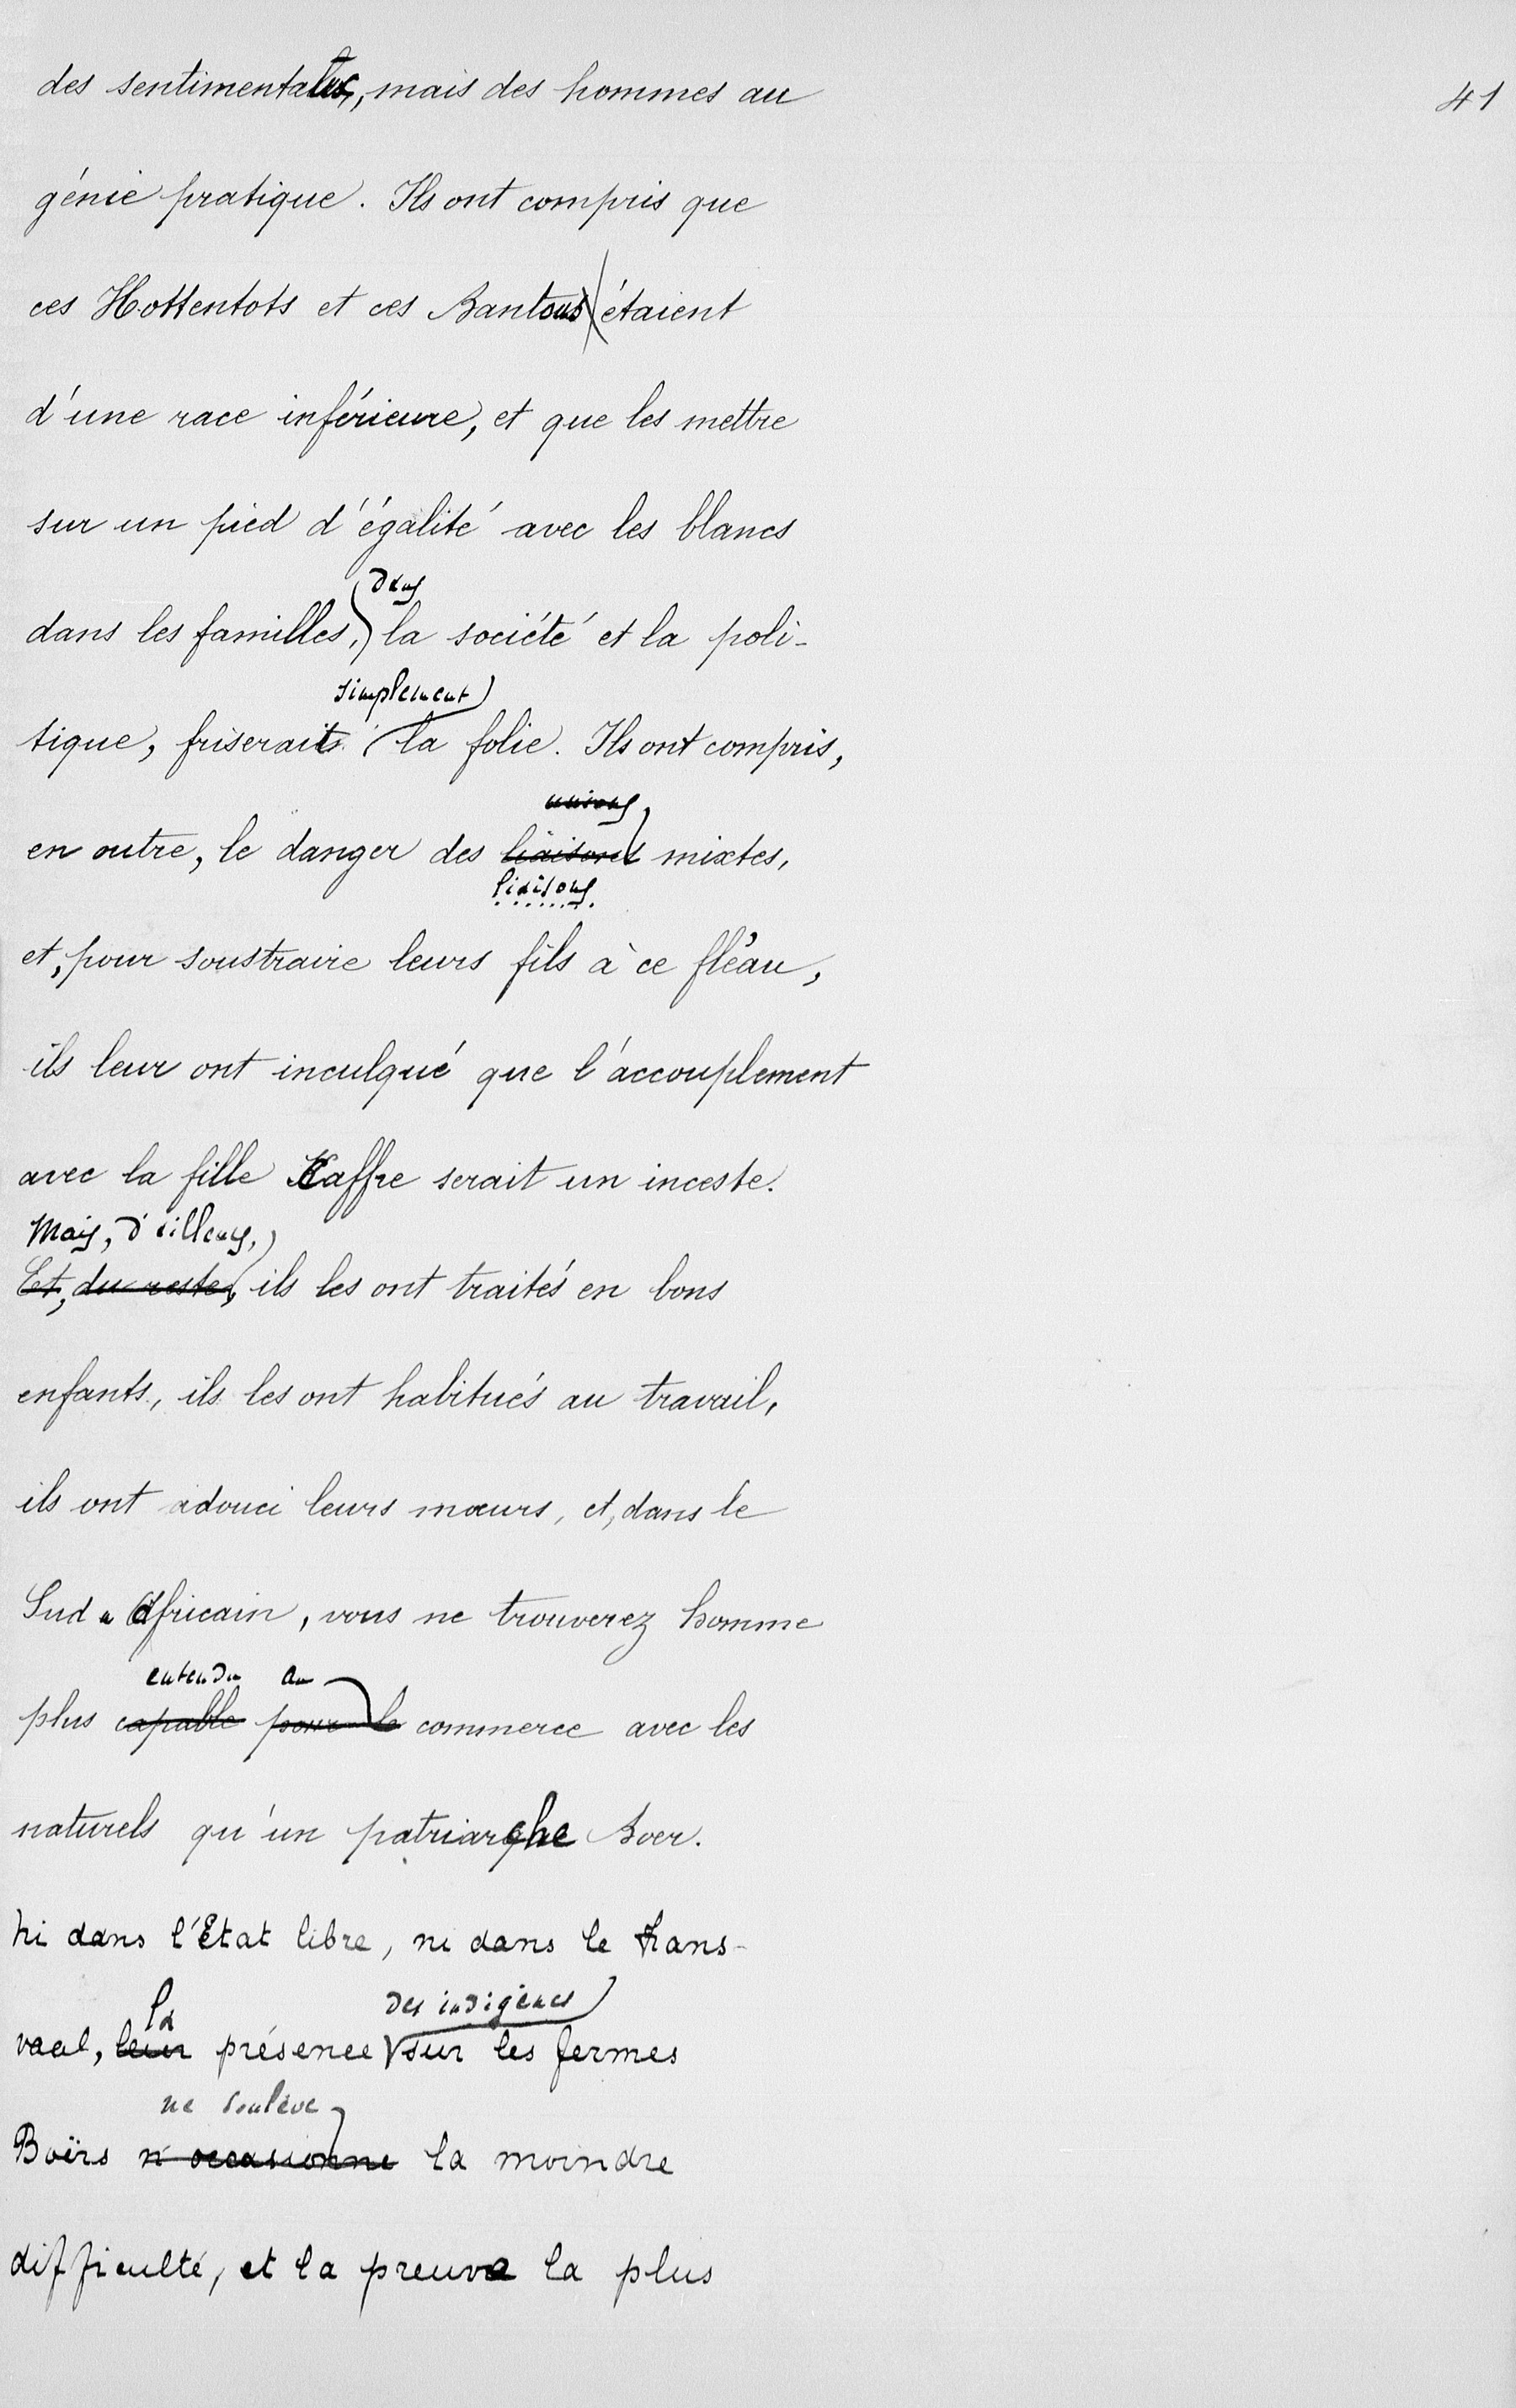 des sentimentaux, mais des hommes au
41
génie pratique. Ils ont compris que
ces Hottentots et ces Bantous étaient
d'une race inférieure, et que les mettre
sur un pied d'égalité avec les blancs
dans
dans les familles, la société et la poli-
simplement
tique, friserait la folie. Ils ont compris,
unions
en outre, le danger des liaisons mixtes,
liaisons
et, pour soustraire leurs fils à ce fléau,
ils leur ont inculqué que l'accouplement
avec la fille Caffre serait un inceste.
Mais, d'ailleurs,
Et, du reste, ils les ont traités en bons
enfants, ils les ont habitués au travail,
ils ont adouci leurs mœurs, et, dans le
Sud-Africain, vous ne trouverez homme
entendu au
plus capable pour le commerce avec les
naturels qu'un patriarche Boer.
Ni dans l'Etat libre, ni dans le Trans-
la des indigènes
vaal, leur présence sur les fermes
ne soulève
Boërs n'occasionne la moindre
difficulté, et la preuve la plus